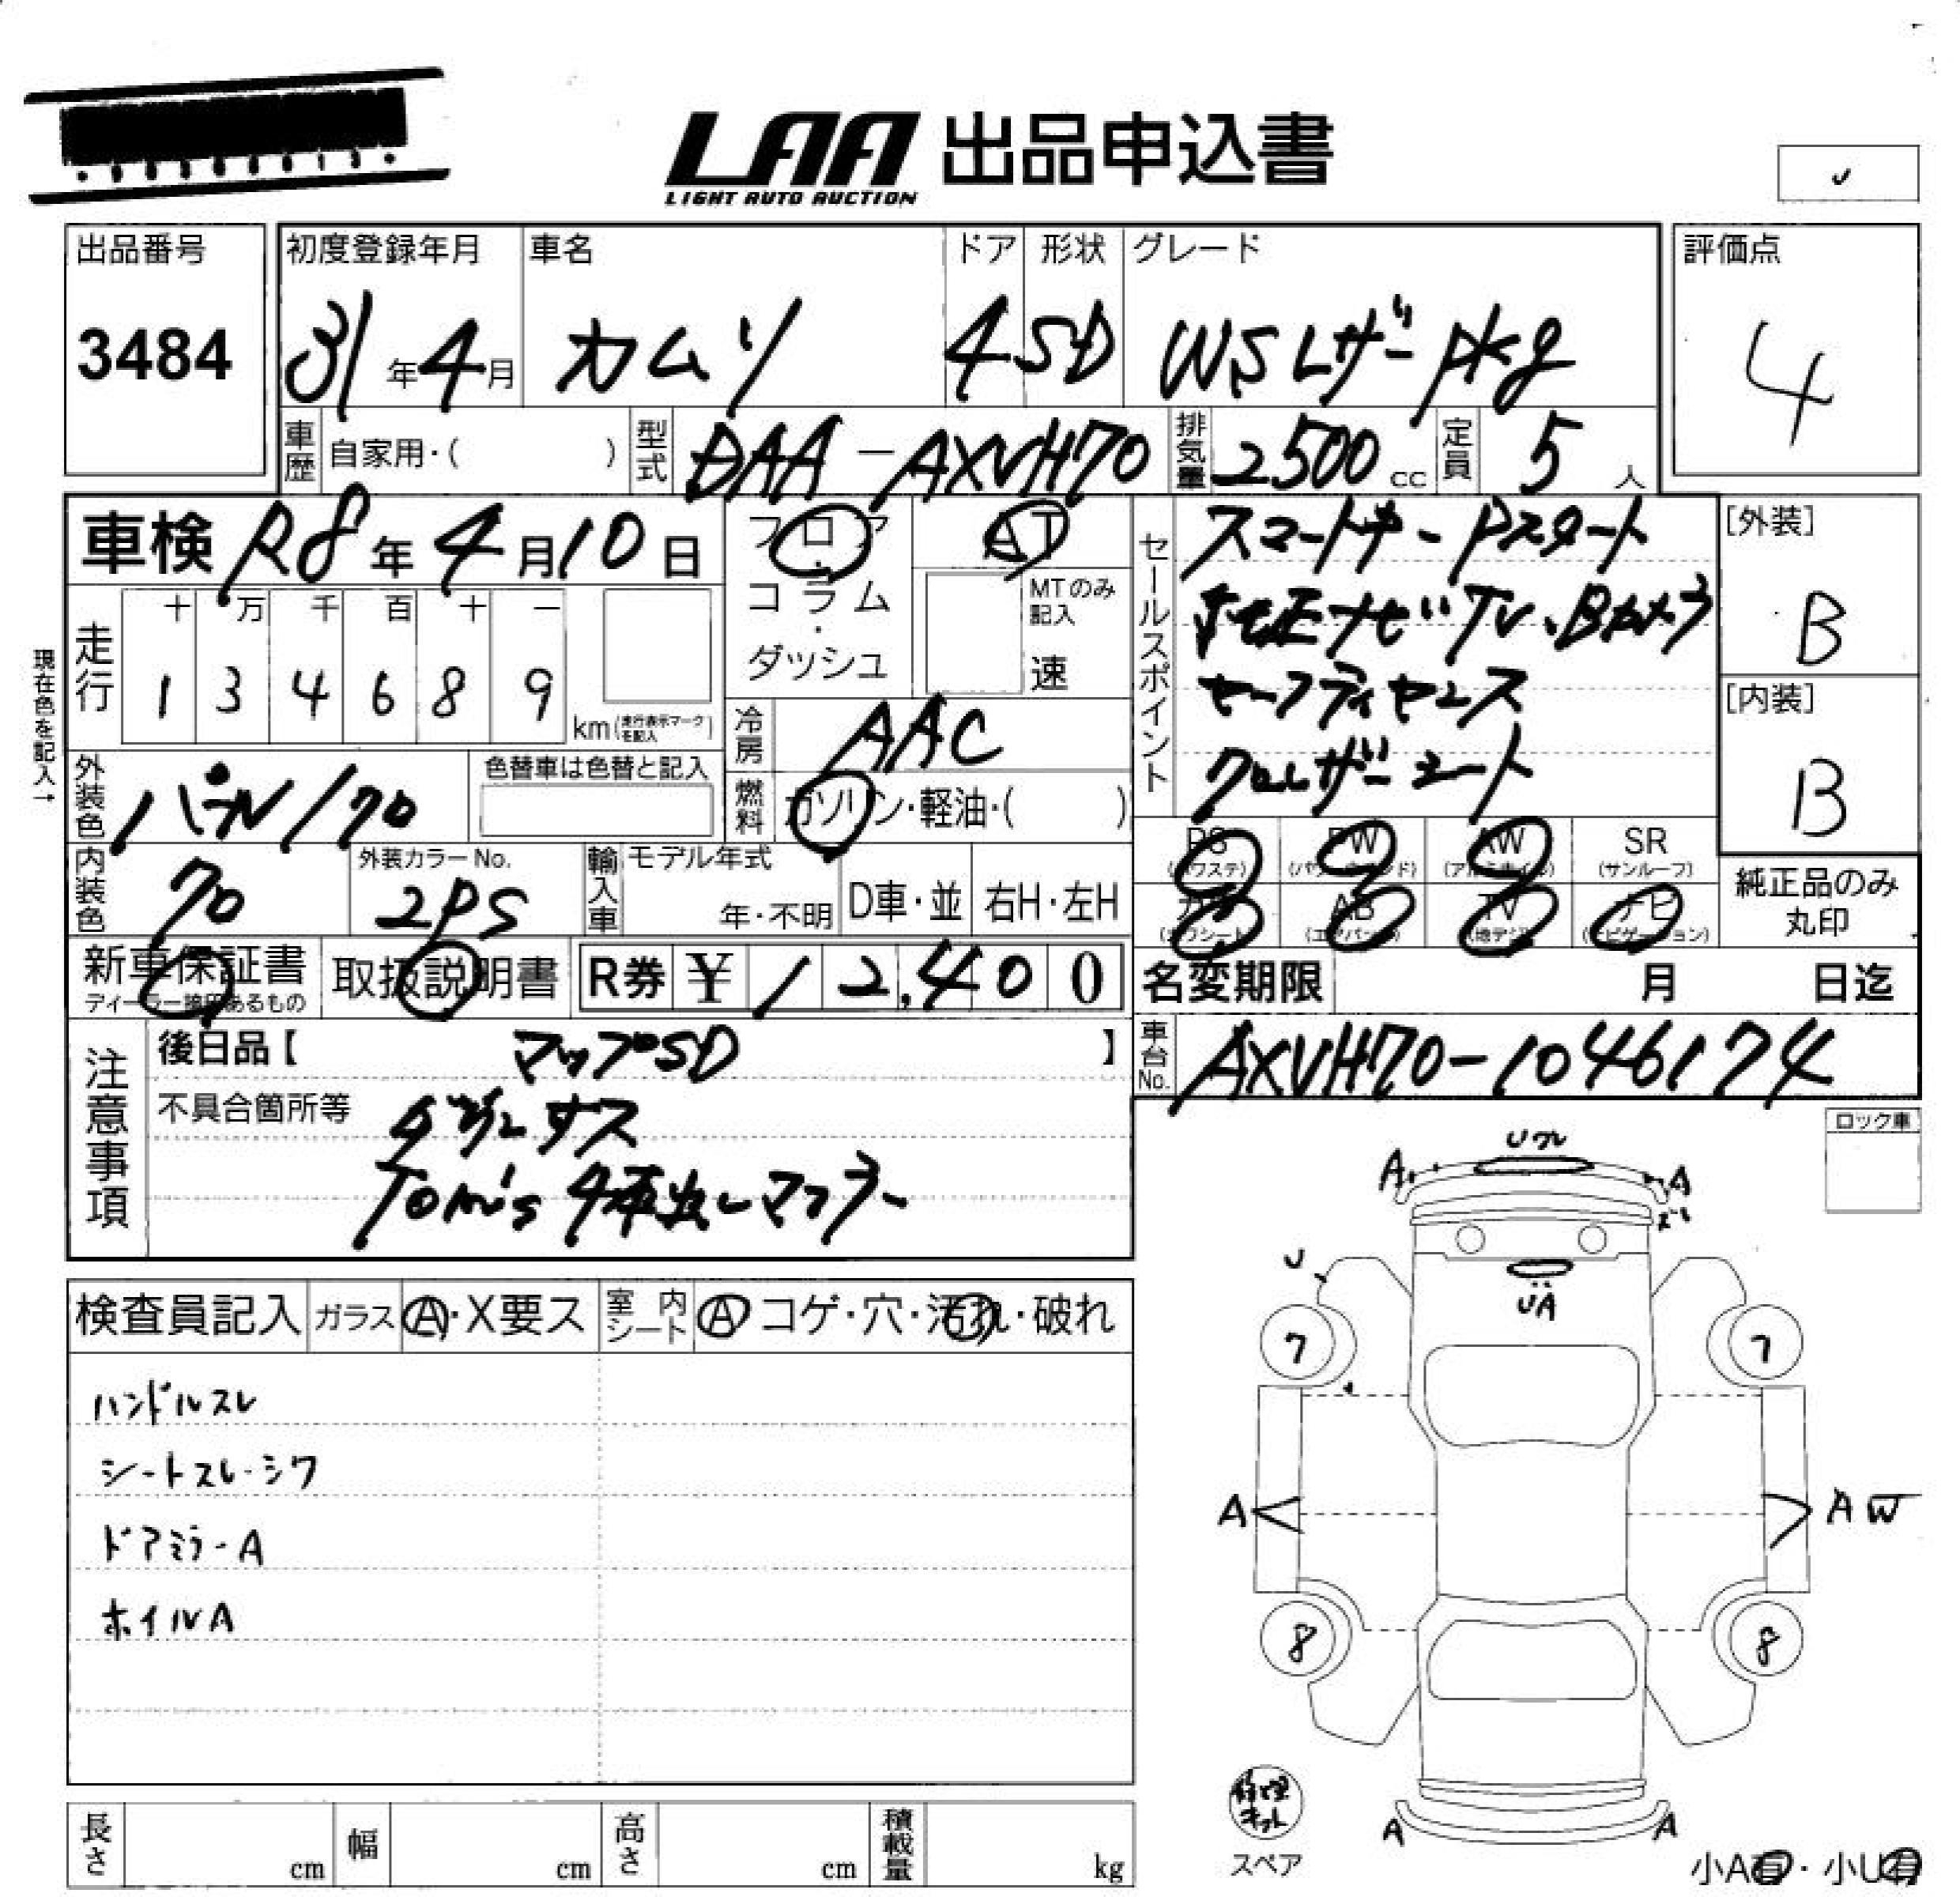 LAA 出品申込書
LIGHT AUTO AUCTION
出品番号
3484
初度登録年月
31年4月
車名
カムリ
ドア
4
形状
SD
グレード
WSレザーpkg
評価点
4
車歴
自家用・( )
型式
DAA-AXVH70
排気量
2500cc
定員
5人
車検 R8年4月10日
フロア・コラム・ダッシュ
AT
MTのみ記入
速
セールスポイント
スマートキーPスタート
純正ナビTV、Bカメラ
セーフティセンス
クロレザーシート
[外装]
B
[内装]
B
現在色を記入→
走行
十 万 千 百 十 一
1 3 4 6 8 9
km(走行表示マークを記入)
冷房
AAC
燃料
ガソリン・軽油・( )
外装色
パール/クロ
色替車は色替と記入
内装色
クロ
外装カラーNo.
2PS
輸入車
モデル年式
年・不明
D車・並
右H・左H
PS
(パワステ)
PW
(パワーウインド)
AW
(アルミホイル)
SR
(サンルーフ)
カワ
(カワシート)
AB
(エアバック)
TV
(地デジ)
ナビ
(ナビゲーション)
純正品のみ
丸印
新車保証書
ディーラー捺印あるもの
取扱説明書
R券 ¥12,400
名変期限 月 日迄
注意事項
後日品【 マップSD 】
不具合箇所等
ダウンサス
Tom's 4本出しマフラー
車台No.
AXVH70-1046174
ロック車
検査員記入
ガラス
A・X要ス
室内シート
A コゲ・穴・汚れ・破れ
ハンドルスレ
シートスレ・シワ
ドアミラーA
ホイルA
A
A
UA
U
7
7
A
A W
8
8
A
A
修理キット
スペア
長さ cm
幅 cm
高さ cm
積載量 kg
小A有・小U有